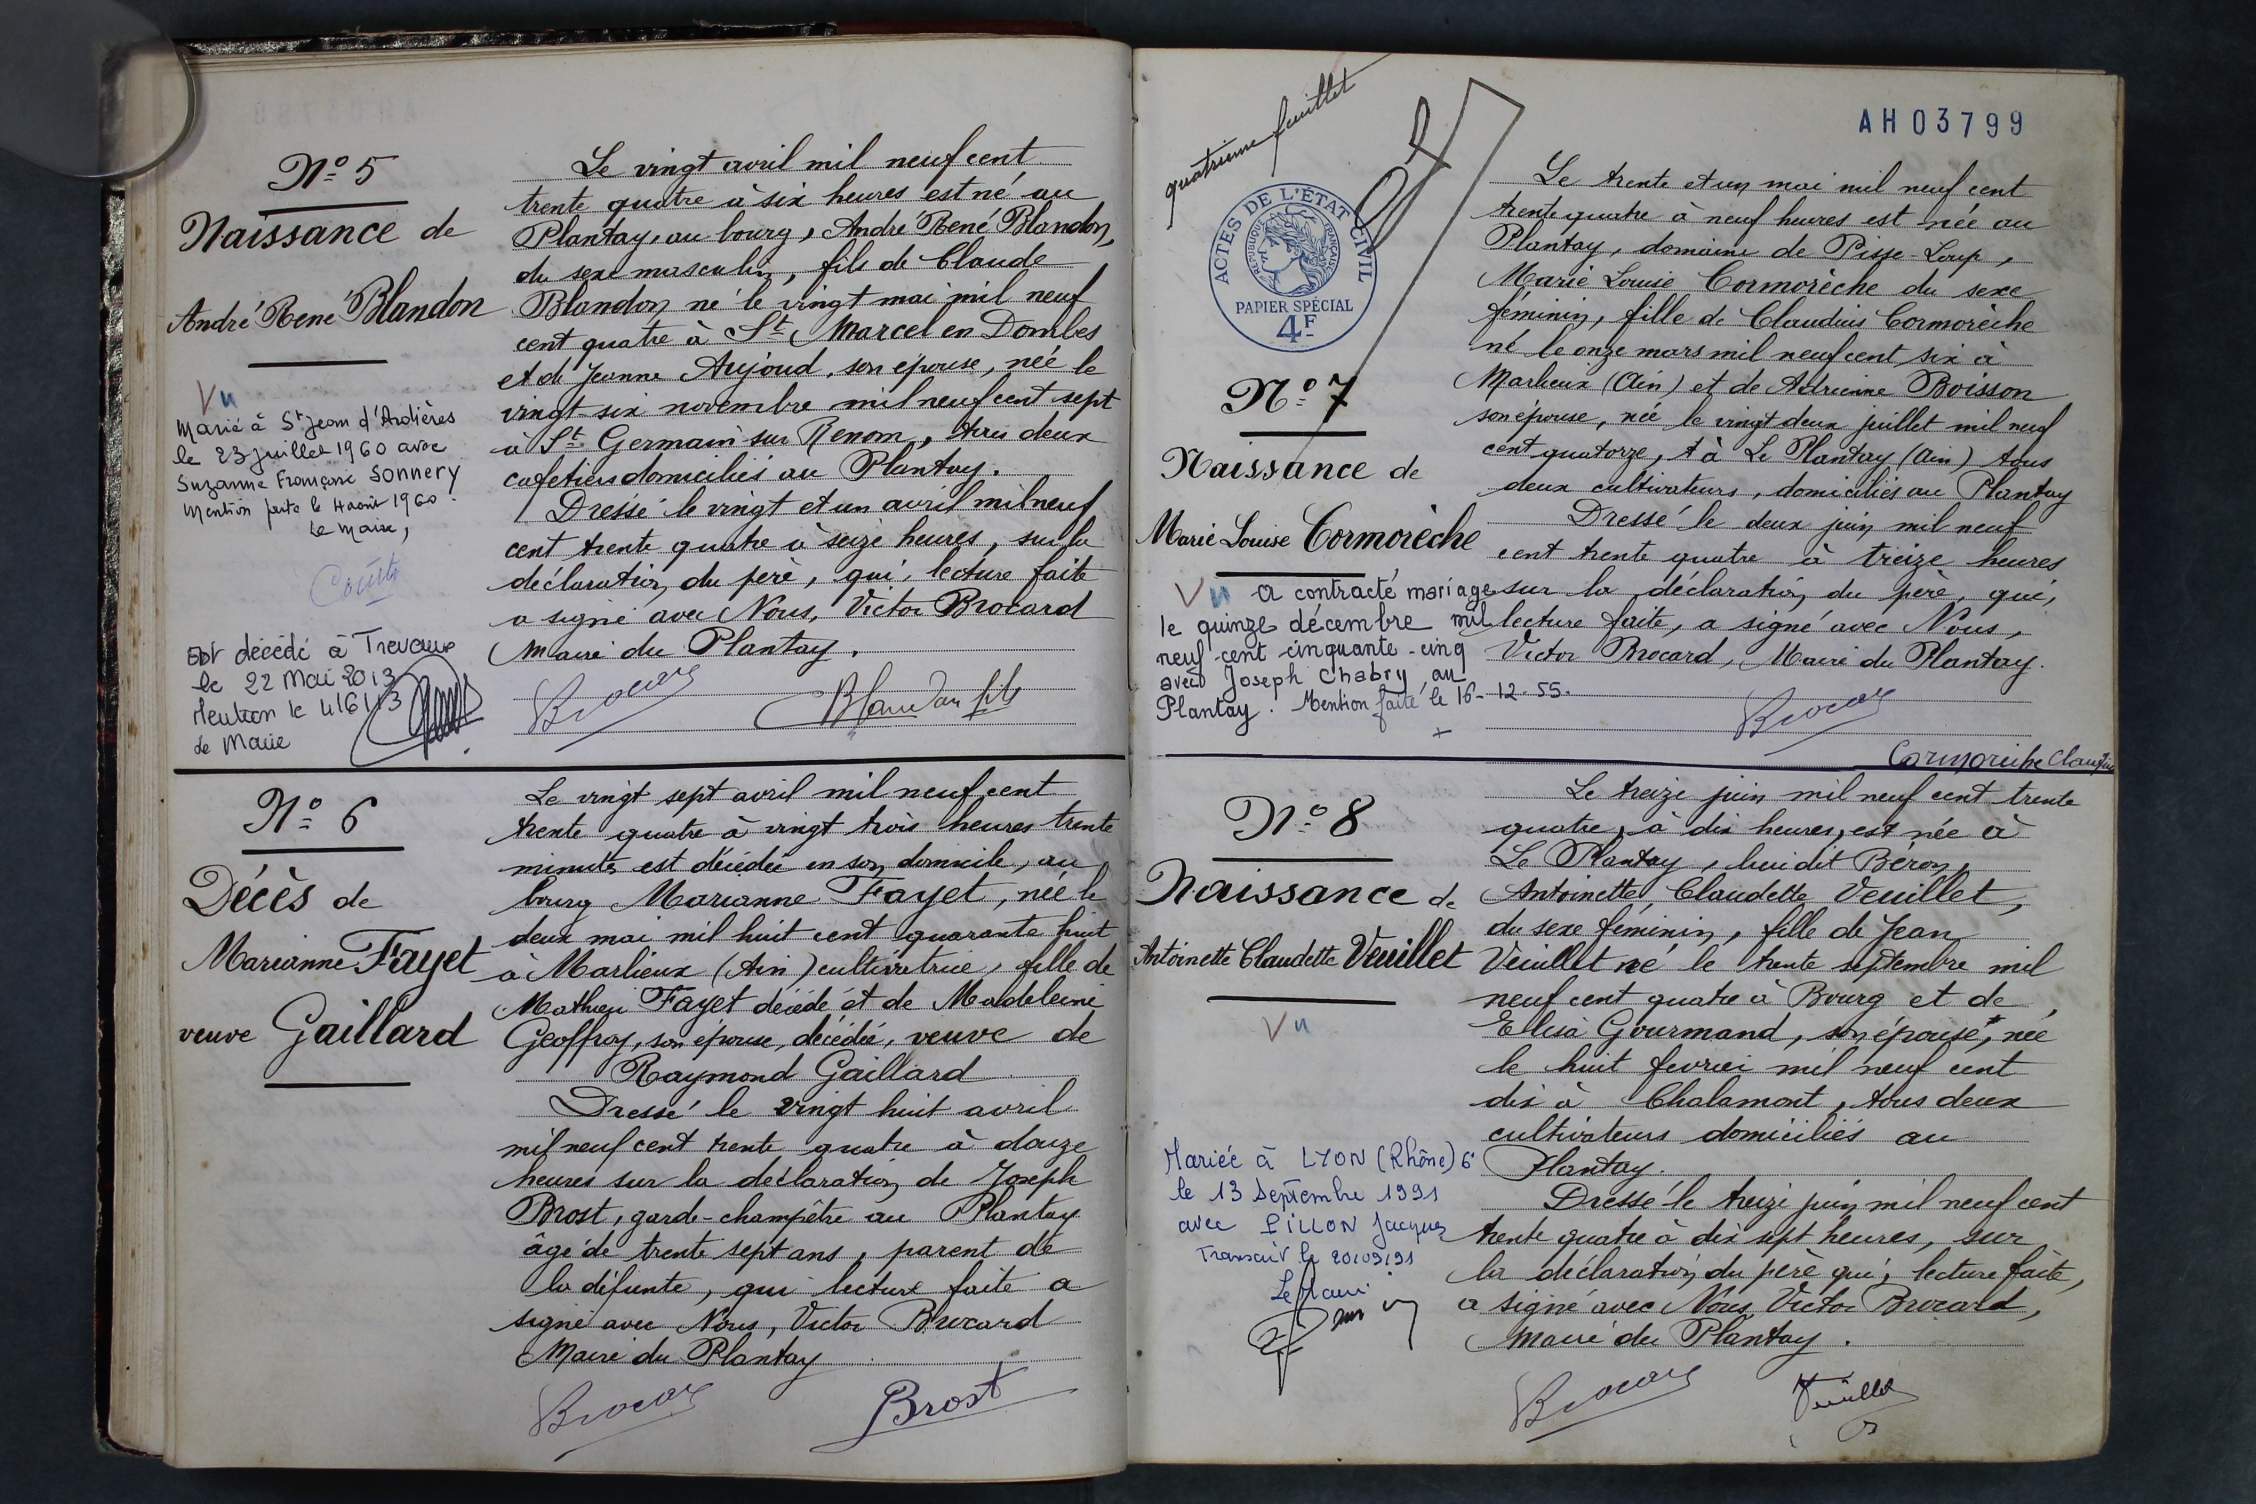 N° 5
Naissance de
André René Blandon
Vu
Marié à St Jean d'Ardières
le 23 juillet 1960 avec
Suzanne Françoise Sonnery
Mention faite le 4 août 1960.
Le Maire,
Est décédé à Trevoux
le 22 Mai 2013
Mention le 4/6/13
Le Maire
Le vingt avril mil neuf cent
trente quatre à six heures est né au
Plantay, au bourg, André René Blandon,
du sexe masculin, fils de Claude
Blandon né le vingt mai mil neuf
cent quatre à St Marcel en Dombes
et de Jeanne Aujoud, son épouse, née le
vingt six novembre mil neuf cent sept
à St Germain sur Renom, tous deux
cafetiers domiciliés au Plantay.
Dressé le vingt et un avril mil neuf
cent trente quatre à seize heures, sur la
déclaration du père, qui, lecture faite
a signé avec Nous, Victor Brocard
Maire du Plantay.
Brocard Blandon fils
N° 6
Décès de
Marianne Fayet
veuve Gaillard
Le vingt sept avril mil neuf cent
trente quatre à vingt trois heures trente
minutes est décédée en son domicile, au
bourg Marianne Fayet, née le
deux mai mil huit cent quarante huit
à Marlieux (Ain) cultivatrice, fille de
Mathieu Fayet décédé et de Madeleine
Geoffroy, son épouse, décédée, veuve de
Raymond Gaillard
Dressé le vingt huit avril
mil neuf cent trente quatre à douze
heures sur la déclaration de Joseph
Brost, garde-champêtre au Plantay
âgé de trente sept ans, parent de
la défunte, qui lecture faite a
signé avec Nous, Victor Brocard
Maire du Plantay
Brocard Brost
quatrième feuillet
AH03799
ACTES DE L'ÉTAT CIVIL
RÉPUBLIQUE FRANÇAISE
PAPIER SPÉCIAL
4F
N° 7
Naissance de
Marie Louise Cormorèche
Vu
a contracté mariage
le quinze décembre mil
neuf-cent-cinquante-cinq
avec Joseph Chabry, au
Plantay. Mention faite le 16-12-55.
Le trente et un mai mil neuf cent
trente quatre à neuf heures est née au
Plantay, domaine de Pisse-Loup,
Marie Louise Cormorèche du sexe
féminin, fille de Claudius Cormorèche
né le onze mars mil neuf cent six à
Marlieux (Ain) et de Adrienne Boisson
son épouse, née le vingt deux juillet mil neuf
cent quatorze, à Le Plantay (Ain) tous
deux cultivateurs, domiciliés au Plantay
Dressé le deux juin mil neuf
cent trente quatre à treize heures
sur la déclaration du père, qui,
lecture faite, a signé avec Nous,
Victor Brocard, Maire du Plantay.
Brocard
Cormorèche Claudius
N° 8
Naissance de
Antoinette Claudette Veuillet
Vu
Mariée à LYON (Rhône) 6e
le 13 Septembre 1991
avec PILLON Jacques
Transcrit le 20/09/91
Le Maire
Le treize juin mil neuf cent trente
quatre, à dix heures, est née à
Le Plantay, lieu dit Béron,
Antoinette Claudette Veuillet,
du sexe féminin, fille de Jean
Veuillet né le trente septembre mil
neuf cent quatre à Bourg et de
Elisa Gourmand, son épouse*, née
le huit fevrier mil neuf cent
dix à Chalamont, tous deux
cultivateurs domiciliés au
Plantay.
Dressé le treize juin mil neuf cent
trente quatre à dix sept heures, sur
la déclaration du père qui, lecture faite,
a signé avec Nous Victor Brocard,
Maire du Plantay.
Brocard Veuillet